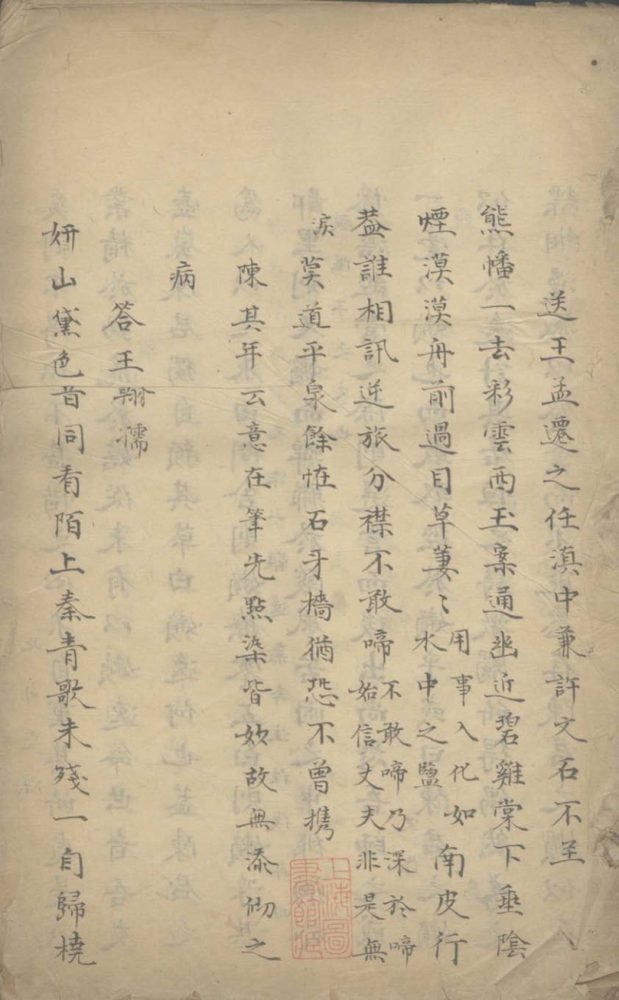 送王孟遷之任滇中兼許文石不至
熊幡一去彩雲西玉案通幽近碧雞棠下垂陰
煙漠漠舟前過目草萋〻用事入化如水中之鹽南皮行
葢誰相訊逆旅分襟不敢啼不敢啼乃深於啼始信丈夫非是無
淚莫道平泉餘恠石牙檣猶恐不曾携
陳其年云意在筆先點染皆妙故無添仂之
病
答王翰
妍山黛色昔同看陌上秦青歌未殘一自歸橈
上海圖
書館藏